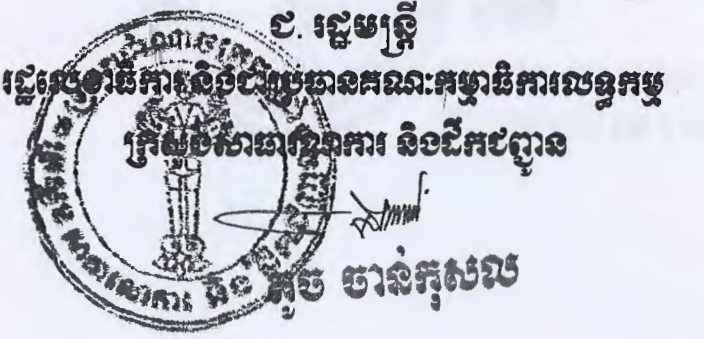 ជ. រដ្ឋមន្ត្រី
រដ្ឋលេខាធិការ និងជាប្រធានគណៈកម្មាធិការលទ្ធកម្ម
ក្រសួងសាធារណការ និងដឹកជញ្ជូន
តូច ចាន់កុសល